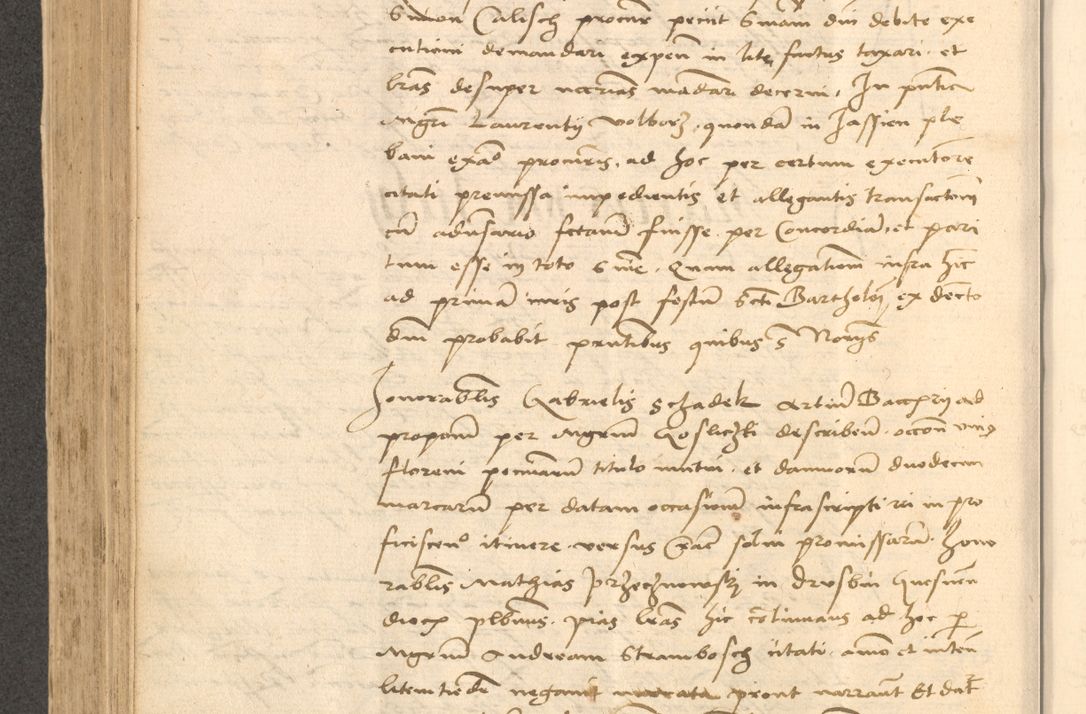 Simon Calisch procur petiit Smam dni debite exe
cutioni demandari expen in lite factas taxari et
lras desuper necrias mandari decerni. In pntia
Mgri Laurentij Volborz quondā in Jassien ple
bani exa procuris, ad hoc per certum executore
citati premissa impedientis et allegantis transactom
cū adversario fctam fuisse per Concordiā et pari
tum esse in toto Smē. Quam allegationi infra hic
ad primā iuris post festū Scti Bartholoi ex decto
dni probabit pntibus quibus S Norys
Honorablis Gabrielis Schadek artiū Baccrij ad
proponm per Mgrum Gosliczki describen. occon unius
floreni pecuniarū titulo mutui. et damnorū duodecim
marcarū per datam occasionē infrascripti rei in pro
ficiscen itinere versus Crac solvi promissarū. Hono
rablis Mathias Przechnowski in Drosbin Gnesnen
dioc plbnus. prias lras hic continuans ad hoc per
Mgrum Andream Strambosch citati. animo et inten
litem tiede negavit narrata prout narrant Et dat